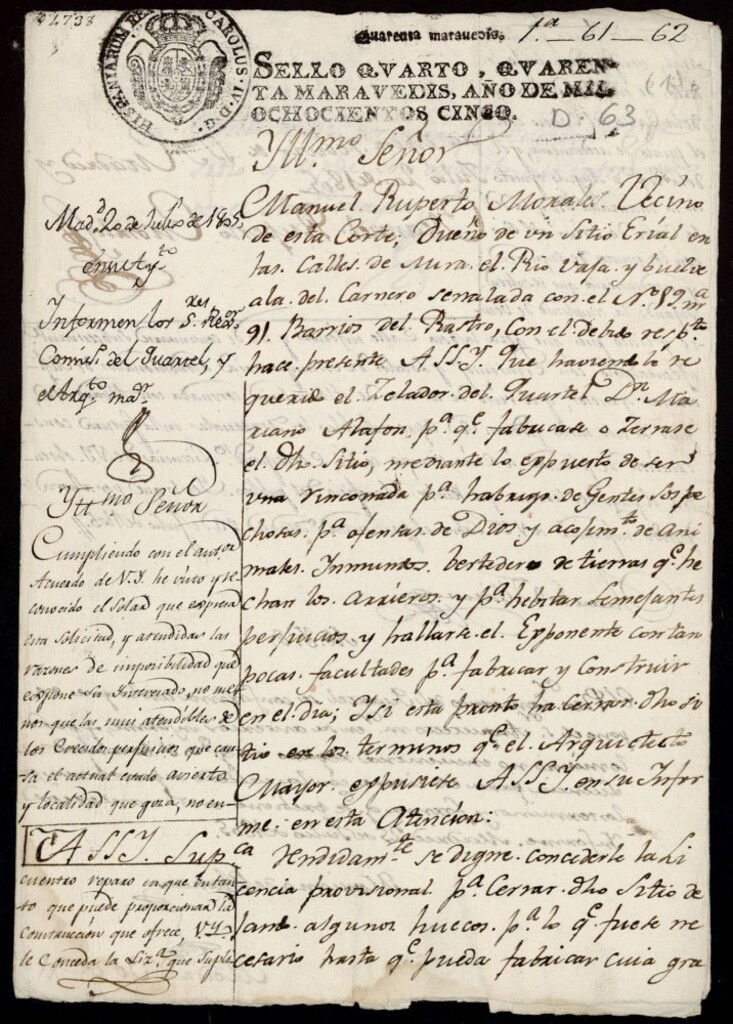 4738
HISPANIARUM REX CAROLUS IV D G
Quarenta maravedis. 1.ª - 61 - 62
SELLO QVARTO, QVAREN-
TA MARAVEDIS, AÑO DE MIL
OCHOCIENTOS CINCO.
D. 63
Yll.mo Señor
Manuel Ruperto Morales Vecino
de esta Corte, Dueño de vn Sitio Erial en
las Calles de Mira el Rio vaja y buelve
ala del Carnero señalada con el N.º 89 m.ª
91. Barrios del Rastro, Con el debido resp.to
hace presente A SSY. Que haviendole re
querido el Zelador del Quartel Dn. Ma
riano Alafon p.ª q.e fabricase o Zerrase
el dho Sitio, mediante lo expuesto de ser
vna rinconada p.ª habrigo de Gentes sospe
chosas p.ª ofensas de Dios y acopim.to de Ani
males Inmundos bertedero de tierras q.e he
chan los Arrieros y p.ª hebitar semejantes
perjuicios y hallarse el Exponente con tan
pocas facultades p.ª fabricar y Construir
en el dia; I si esta pronto ha cerrar dho si
tio en los terminos q.e el Arquitecto
Mayor expusiese A SSY. en su Infor
me: en esta Atencion:
A SSY. Sup.ca rendidam.te se digne concederle la li
cencia provisional p.ª Cerrar dho Sitio de
jando algunos huecos p.ª lo q.e fuese ne
cesario hasta q.e pueda fabricar cuia gra
Mad.d 20 de Julio de 1805,
en su Ay.to
Informen los S.res Rexr.
Comis.º del Quartel, y
el Arq.to ma.r
Yll.mo Señor
Cumpliendo con el antor
Acuerdo de V.Y. he visto y re
conocido el Solar que expresa
esta solicitud, y atendidas las
razones de imposibilidad que
expone el Interesado, no me
nos que las mui atendibles de
los Crecidos perjuicios que cau
sa el actual estado avierto
y localidad que goza, no en-
cuentro reparo en que en tan
to que puede proporcionar la
Construccion que ofrece, V.Y.
le Conceda la Liz.ª que Supli